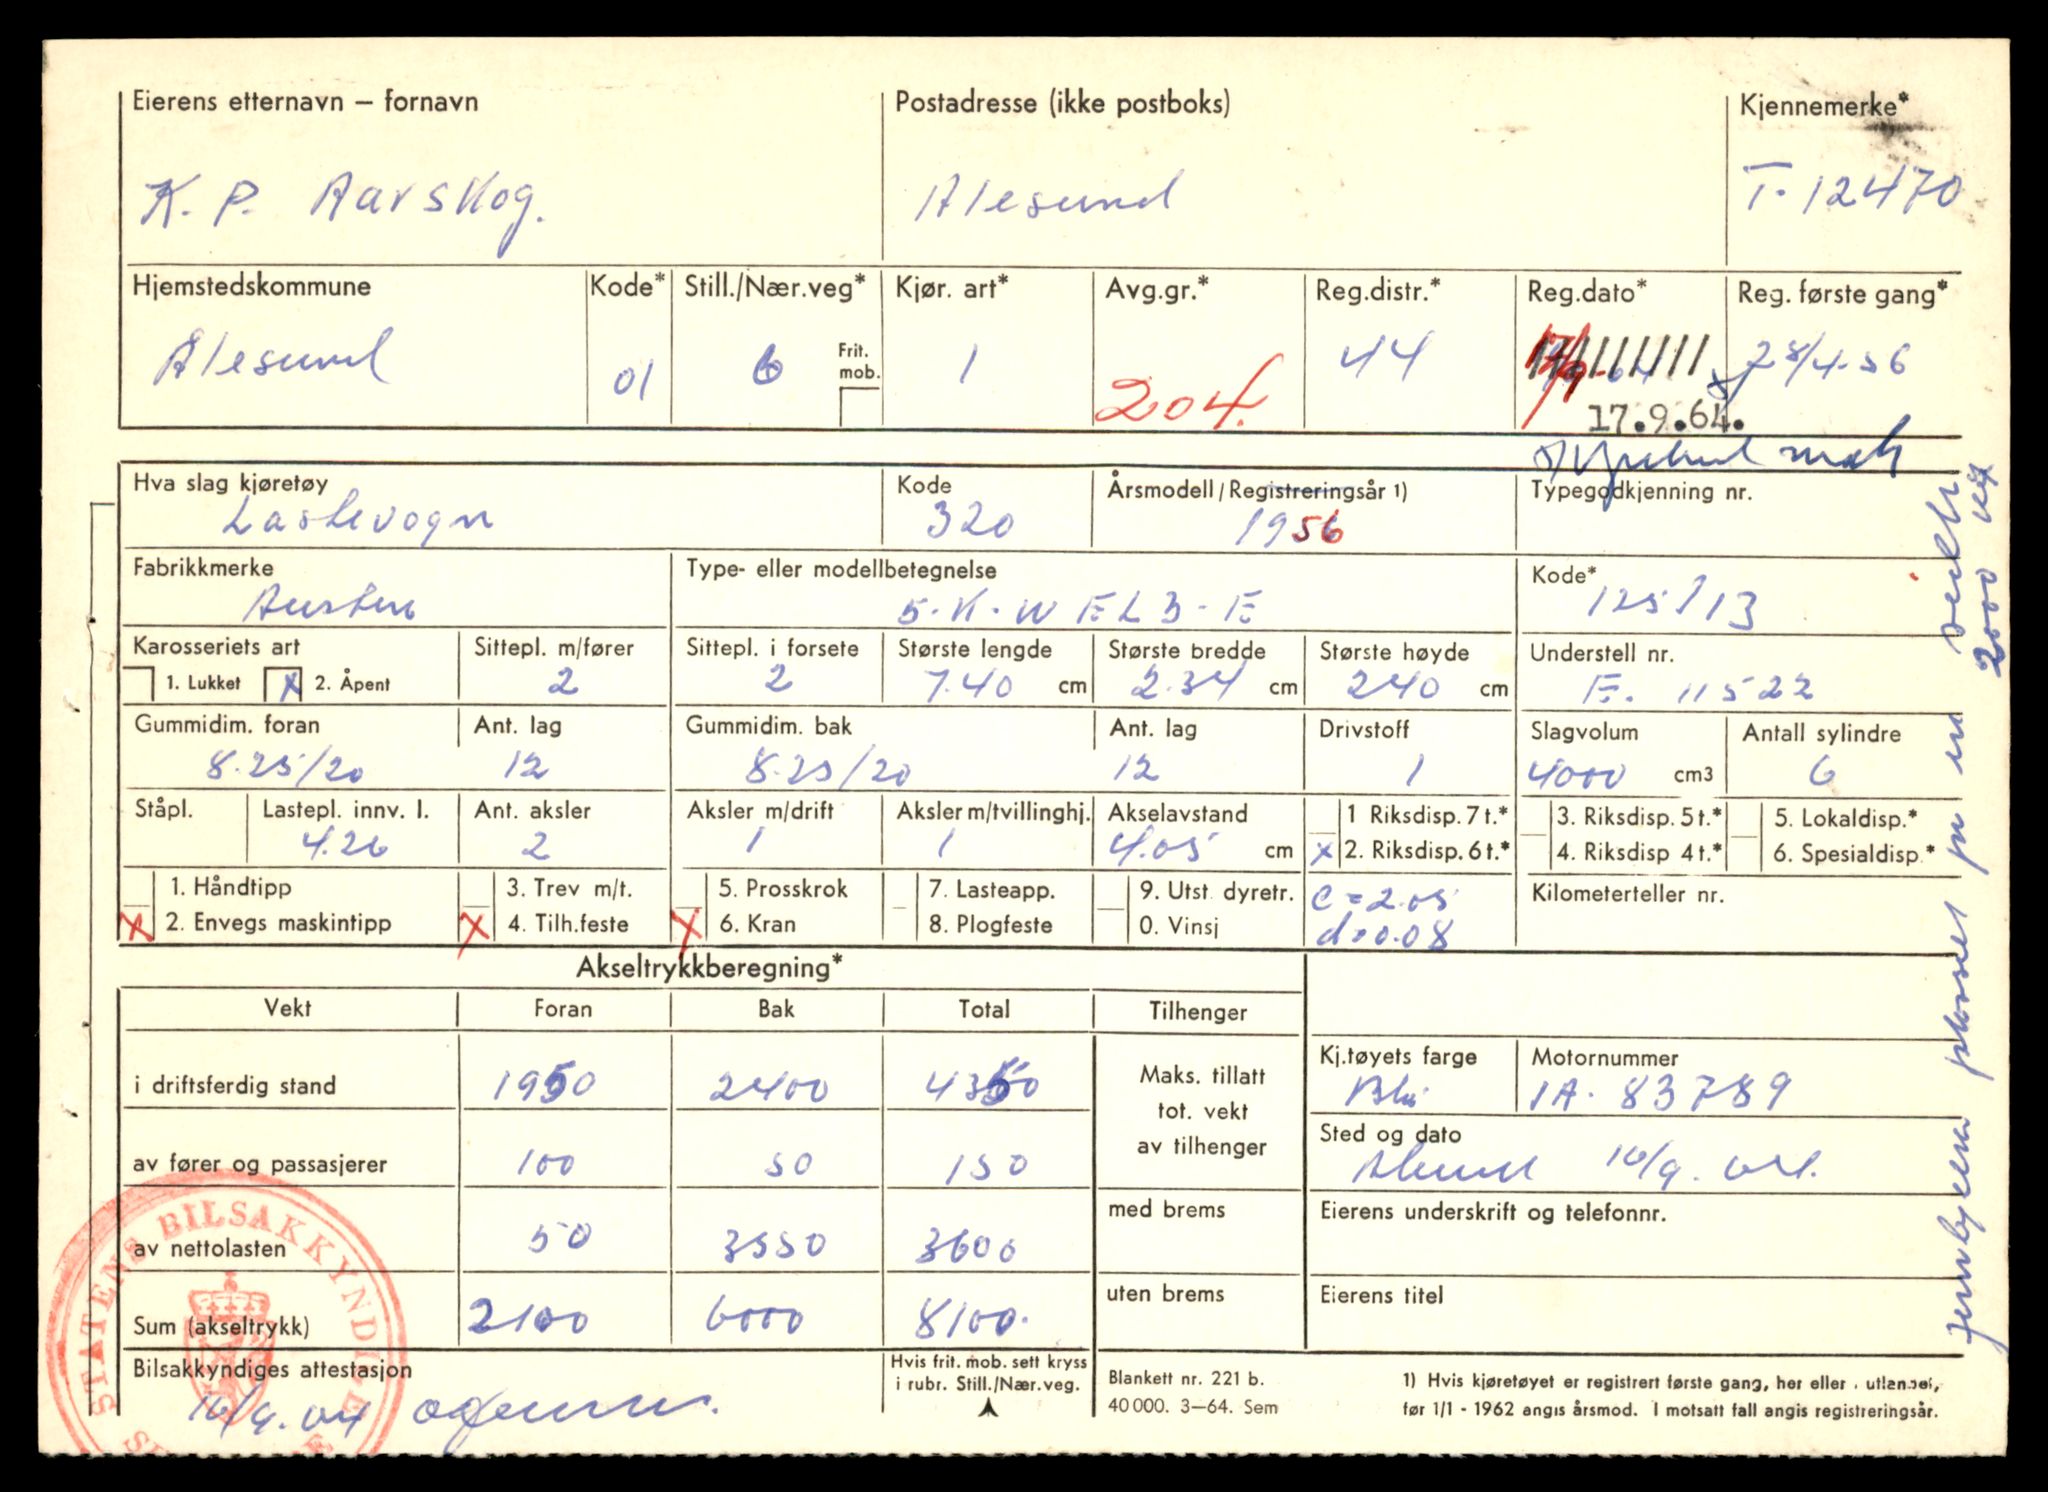 Eierens etternavn – fornavn Postadresse (ikke postboks) Kjennemerke*
K. P. Aarskog. Alesund T. 12470
Hjemstedskommune Kode* Still./Nær.veg* Kjør. art* Avg.gr.* Reg.distr.* Reg.dato* Reg. første gang*
Ålesund 01 6 Frit. mob. 1 204. 44 28/4-56
17.9.64.
Hva slag kjøretøy Kode Årsmodell/Registreringsår 1) Typegodkjenning nr.
Lastevogn 320 1956
Fabrikkmerke Type- eller modellbetegnelse Kode*
Austin 5-K-WEL3-E 125/13
Karosseriets art Sittepl. m/fører Sittepl. i forsete Største lengde Største bredde Største høyde Understell nr.
1. Lukket X 2. Åpent 2 2 7.40 cm 2.34 cm 240 cm E. 11522
Gummidim. foran Ant. lag Gummidim. bak Ant. lag Drivstoff Slagvolum Antall sylindre
8.25/20 12 8.25/20 12 1 4000 cm3 6
Ståpl. Lastepl. innv. l. Ant. aksler Aksler m/drift Aksler m/tvillinghj. Akselavstand 1 Riksdisp. 7 t.* 3. Riksdisp. 5 t.* 5. Lokaldisp.*
4.26 2 1 1 4.05 cm x 2. Riksdisp. 6 t.* 4. Riksdisp 4 t.* 6. Spesialdisp.*
1. Håndtipp 3. Trev m/t. 5. Prosskrok 7. Lasteapp. 9. Utst. dyretr. c = 2.05 Kilometerteller nr.
X 2. Envegs maskintipp X 4. Tilh.feste X 6. Kran 8. Plogfeste 0. Vinsj d=0.08
Akseltrykkberegning*
Vekt Foran Bak Total Tilhenger
i driftsferdig stand 1950 2400 4350 Maks. tillatt tot. vekt av tilhenger
Kj.tøyets farge Motornummer
Blå 1A. 83789
av fører og passasjerer 100 50 150
Sted og dato
16/9.
av nettolasten 50 3550 3600 med brems
Eierens underskrift og telefonnr.
Sum (akseltrykk) 2100 6000 8100. uten brems
Eierens titel
Bilsakkyndiges attestasjon Hvis frit. mob. sett kryss
i rubr. Still./Nær.veg.
16/9.
Blankett nr. 221 b.
40 000. 3–64. Sem
1) Hvis kjøretøyet er registrert første gang, her eller i utlandet,
før 1/1 - 1962 angis årsmod. I motsatt fall angis registreringsår.
STATENS BILSAKKYNDIGE
2000 kg